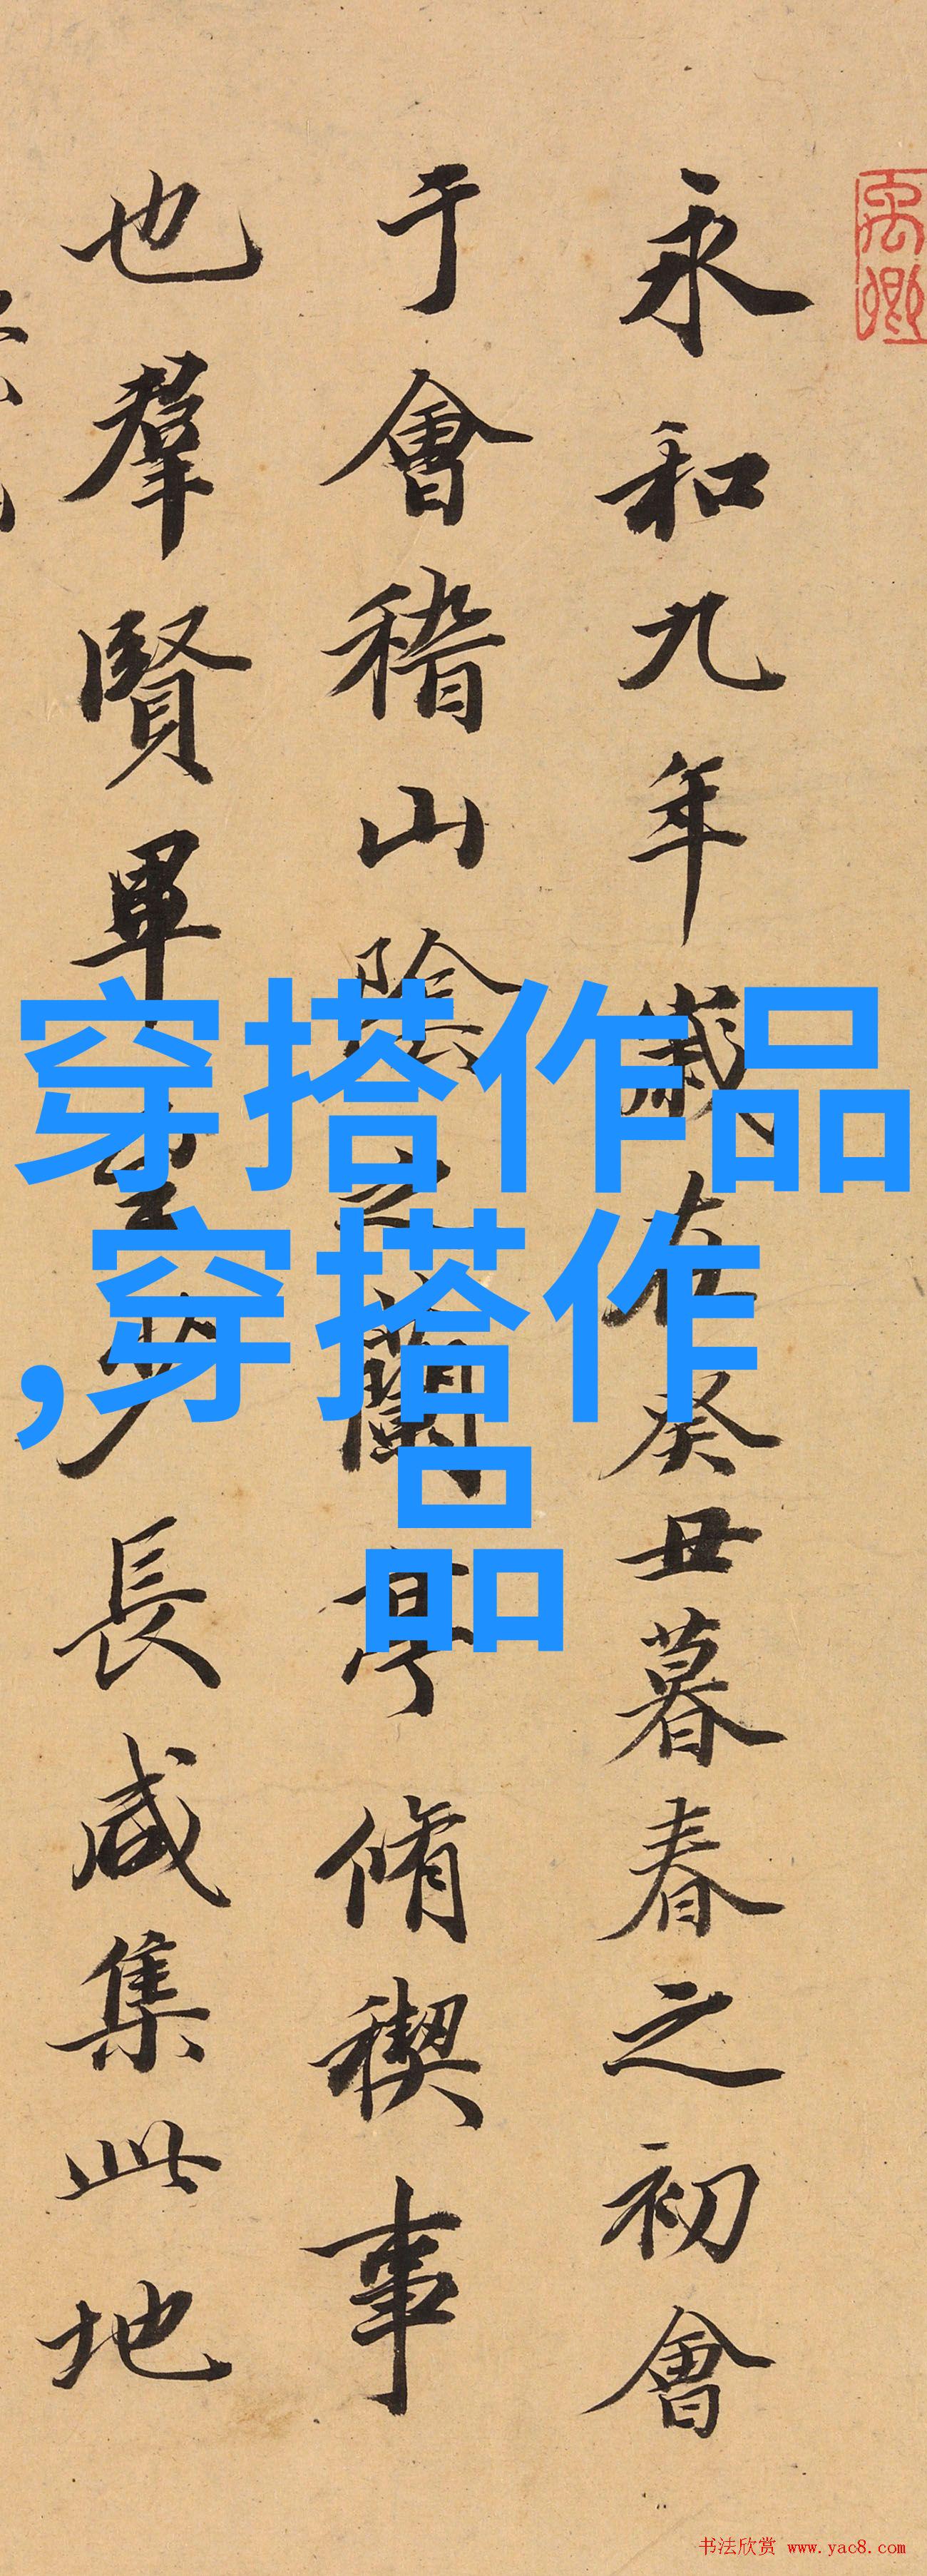 永和九年歲在癸丑暮春之初會
于會稽山陰之蘭亭脩稧事
也羣賢畢至少長咸集此地
穿搭作品
,穿搭作
品
书法欣赏 www.yac8.com